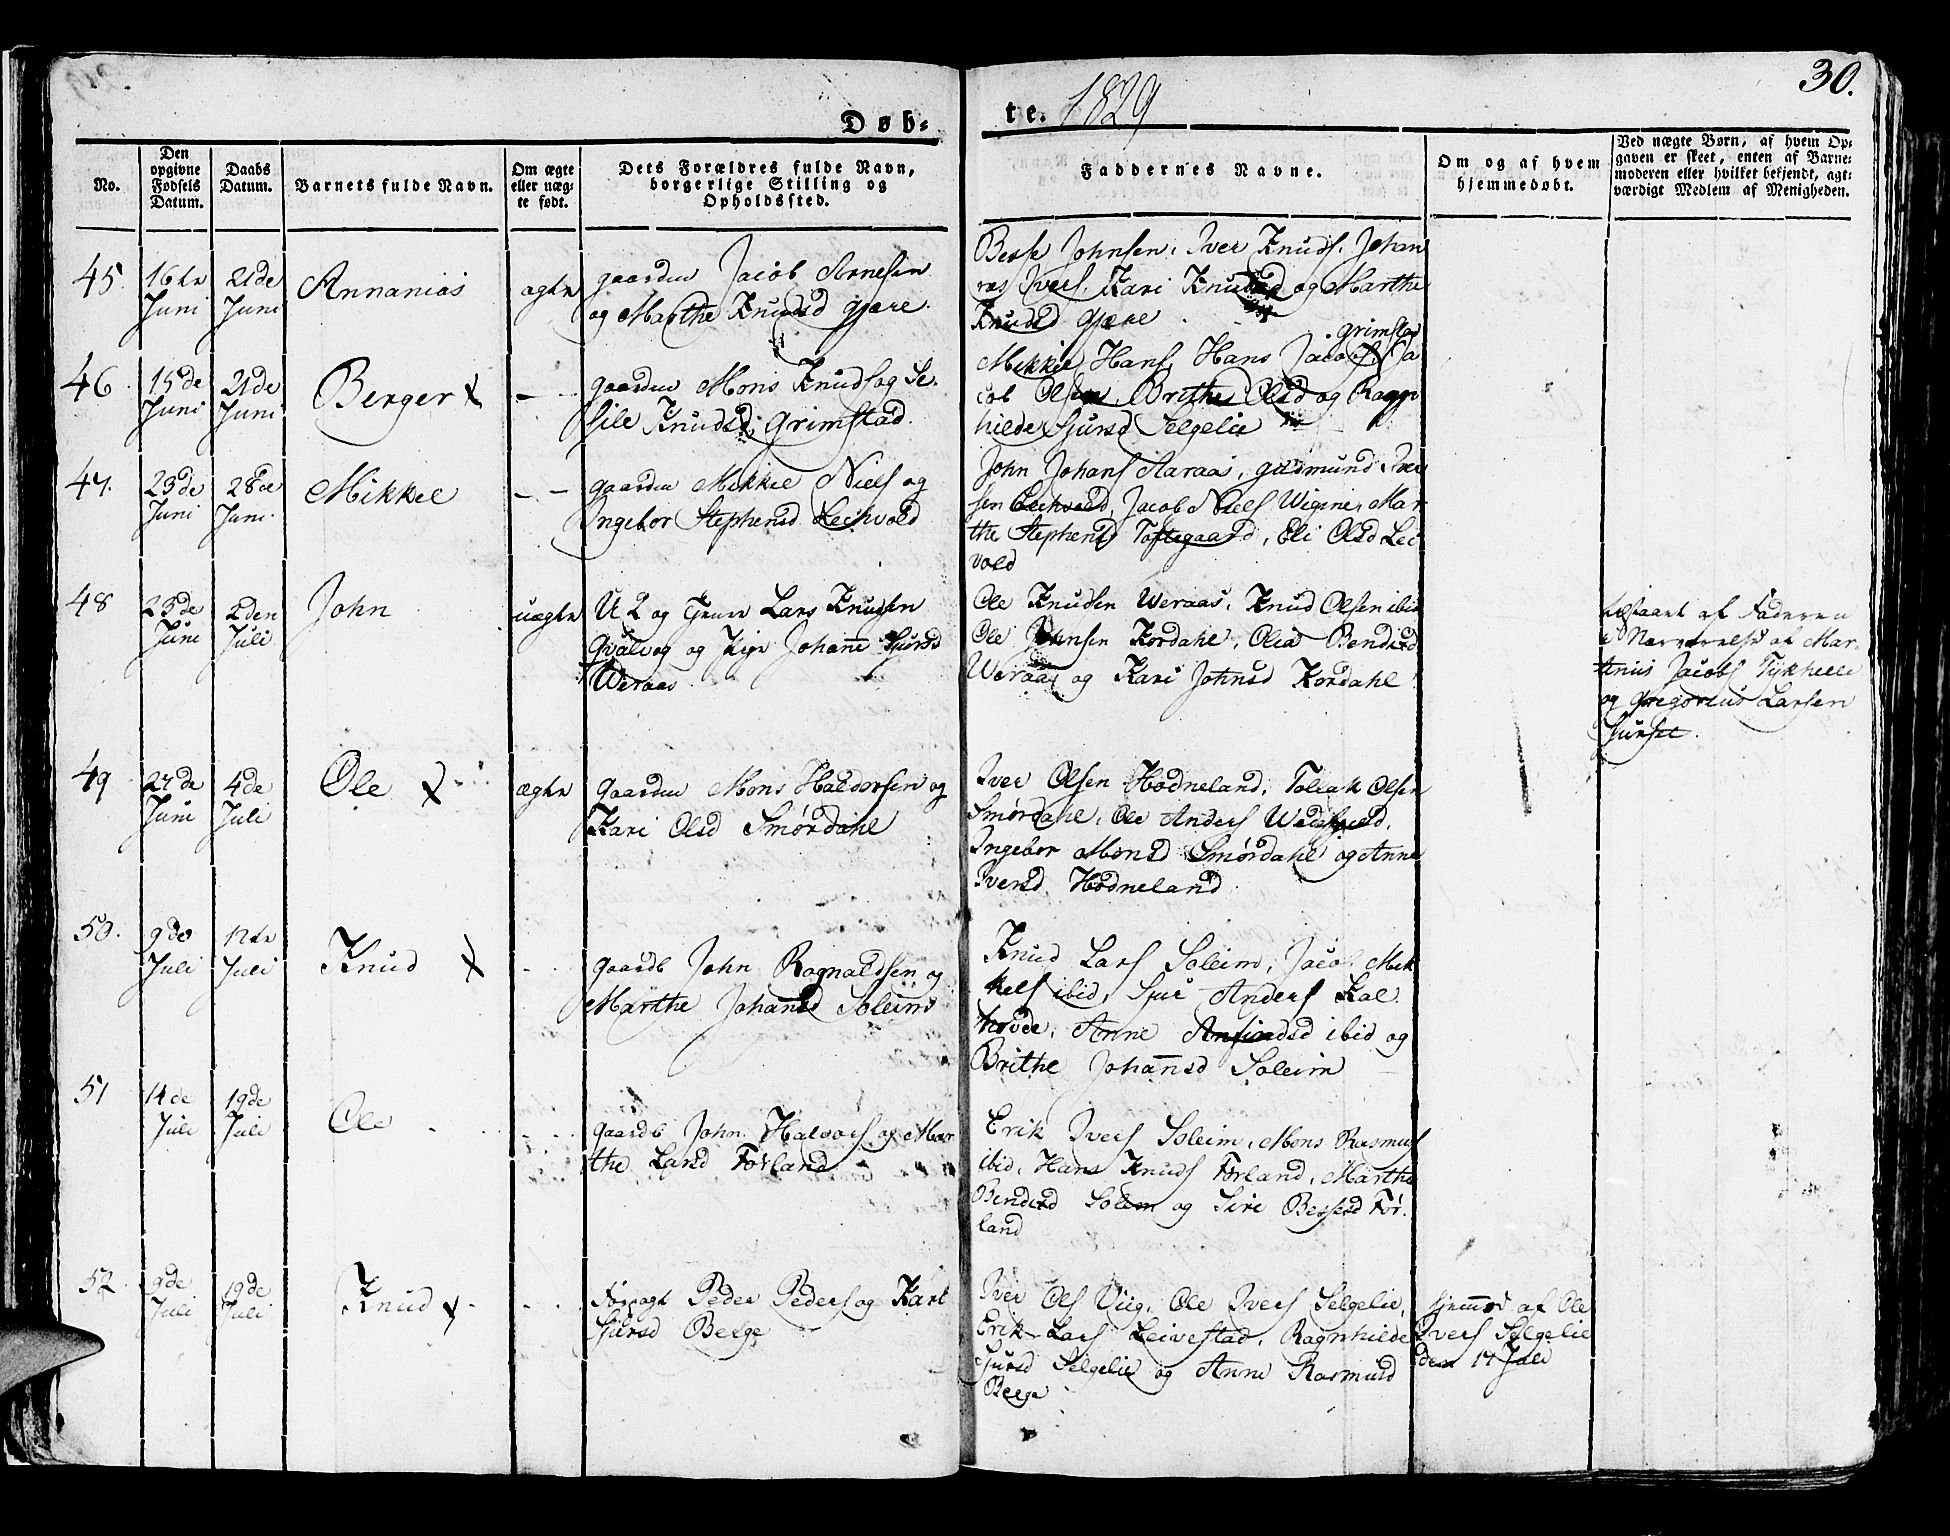 30.
Døb-
te. 1829
No.
Den
opgivne
Fødsels
Datum.
Daabs
Datum.
Barnets fulde Navn.
Om ægte
eller uæg-
te født.
Dets Forældres fulde Navn,
borgerlige Stilling og
Opholdssted.
Faddernes Navne.
Om og af hvem
hjemmedøbt.
Ved uægte Børn, af hvem Op-
gaven er skeet, enten af Barne-
moderen eller hvilket bekjendt, agt-
værdigt Medlem af Menigheden.
45.
16te
Juni
21de
Juni
Annanias
ægte
gaardm Jacob Arnesen
og Marthe Knudsd Gjære.
Besse Johnsen, Iver Knuds. Johan
nes Ivers. Kari Knudsd og Marthe
Knudsd Gjære
46.
15de
Juni
21de
Juni
Berger x
- -
gaardm Mons Knuds og Se-
sile Knudsd, Grimstad.
Grimstad
Mikkel Hans, Hans Jacobs, Ja
cob Olsen, Brithe Olsd og Ragn
hilde Sjursd Selgelie
47.
23de
Juni
28de
Juni
Mikkel
- -
gaardm Mikkel Niels og
Ingebor Stephensd Leihvold
John Johans Aaraas, Gudmund Iver
sen Leihvold, Jacob Niels Wigine, Mar
the Stephensd Toftegaard, Eli Olsd Lei
vold
48
23de
Juni
2den
Juli
John
uægte
U 2 og Lars Knudsen
Qvalvog og Pige Johanne Sjursd
Weraas
Ole Knudsen Weraas, Knud Olsen ibid
Ole Johnsen Kordahl, Olia Bendixd
Weraas og Kari Johnsd Kordahl
af Faderen
i Nærværelse af Mar
tinus Jacobs Tykhelle
og Gregorius Larsen
49
27de
Juni
4de
Juli
Ole x
ægte
Gaardm Mons Haldorsen og
Kari Olsd Smørdahl
Iver Olsen Hodneland, Tollak Olsen
Smørdahl, Ole Anders
Ingebor Monsd Smørdahl og Anne
Iversd Hodneland
50.
9de
Juli
12te
Juli
Knud x
- -
Gaardb John Ragnaldsen og
Marthe Johansd Soleim
Knud Lars Soleim, Jacob Mik
kels ibid, Sjur Anders Kal
hovde, Anne Anfindsd ibid og
Brithe Johannsd Soleim
51
14de
Juli
19de
Juli
Ole
- -
Gaardb John Haldors og Mar
the Larsd Førland
Erik Ivers Soleim, Mons Rasmus
ibid, Hans Knuds Førland, Marthe
Bendixd Solem og Siri Bessesd Før-
land
52
9de
Juli
19de
Juli
Knud x
- -
Peder Peders og Kari
Sjursd Berge
Iver Ols Viig, Ole Ivers Selgelie,
Erik Lars Leivestad, Ragnhilde
Sjursd Selgelie og Anne Rasmusd
Berge
Hjemmed af Ole
Ivers Selgelie
den 17 Juli